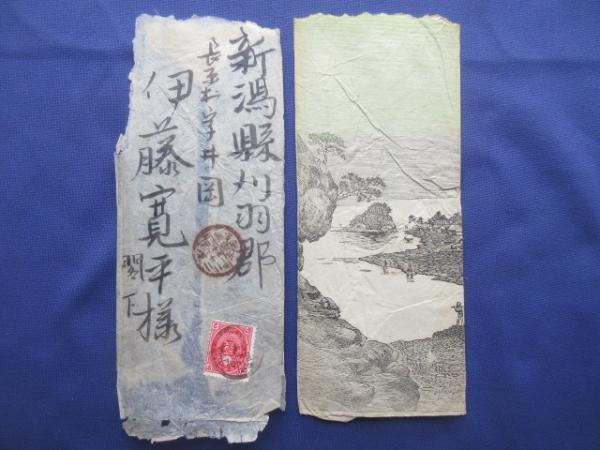 新潟縣刈羽郡
長玉木字井岡
伊藤寛平様
閣下